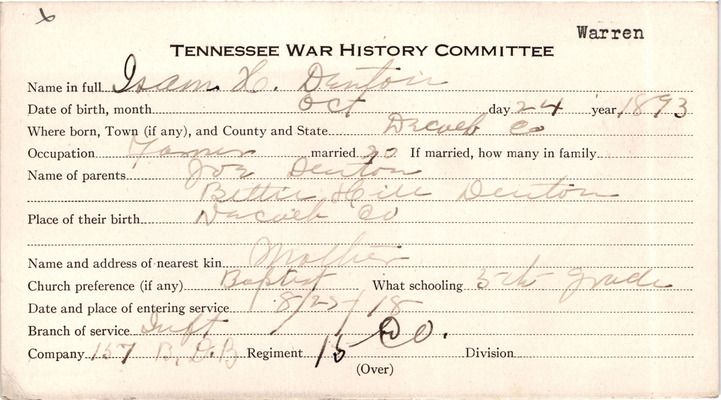 x
Warren
TENNESSEE WAR HISTORY COMMITTEE
Name in full Isam H. Denton
Date of birth, month Oct day 24 year 1893
Where born, Town (if any), and County and State Decaleb Co
Occupation Farmer married no If married, how many in family
Name of parents Joe Denton
Bettie Hill Denton
Place of their birth Dacaleb Co
Name and address of nearest kin Mother
Church preference (if any) Baptist What schooling 5th grade
Date and place of entering service 8/27/18
Branch of service Inft
Company 157 B, D.B Regiment 15 Co. Division
(Over)